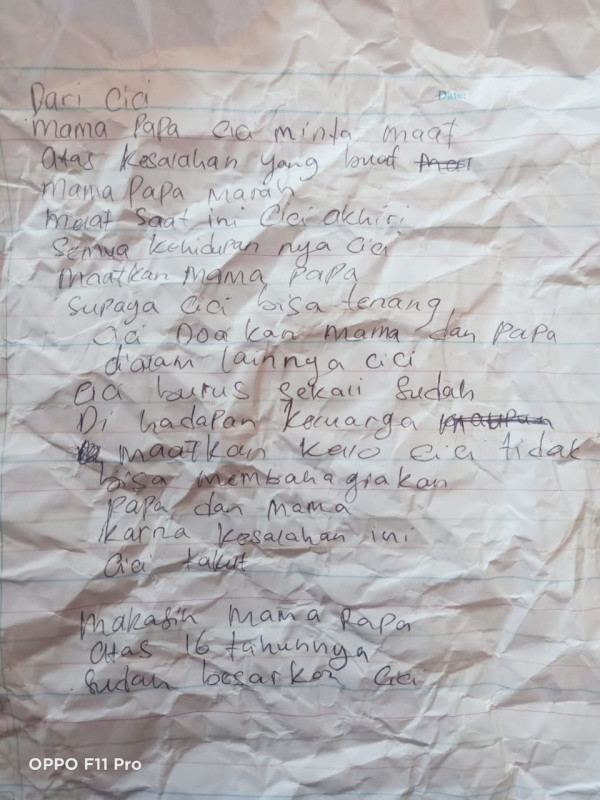 Date:
Dari Cici
mama Papa Cici minta maaf
atas kesalahan yang buat
mama Papa marah
maaf saat ini Cici akhiri
semua kehidupan nya Cici
maafkan mama papa
supaya Cici bisa tenang
Cici Doa kan mama dan papa
dialam lainnya cici
Cici burus sekali sudah
Di hadapan keluarga
maafkan kalo cici tidak
bisa membahagiakan
papa dan mama
karna kesalahan ini
Cici takut
makasih mama Papa
atas 16 tahunnya
sudah besarkan Cici
OPPO F11 Pro